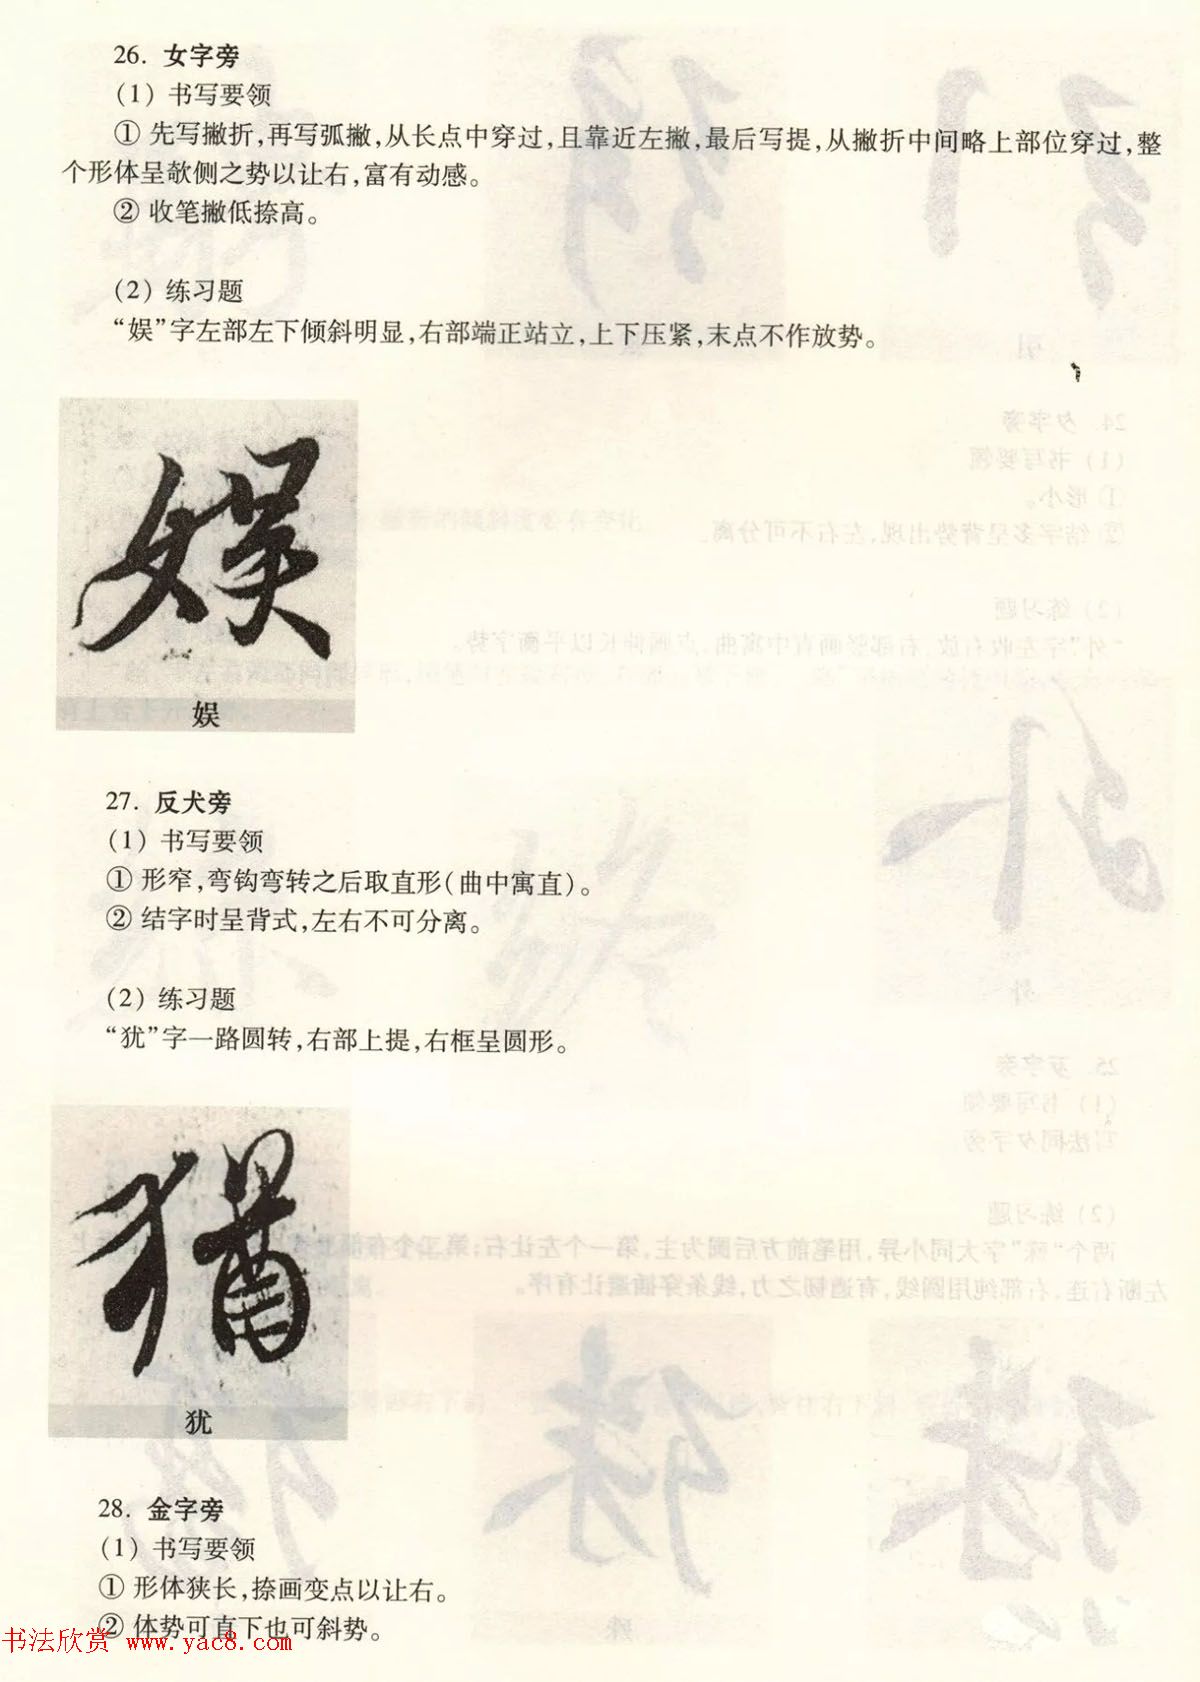 26. 女字旁
(1) 书写要领
① 先写撇折,再写弧撇,从长点中穿过,且靠近左撇,最后写提,从撇折中间略上部位穿过,整
个形体呈欹侧之势以让右,富有动感。
② 收笔撇低捺高。
(2) 练习题
“娱”字左部左下倾斜明显,右部端正站立,上下压紧,末点不作放势。
娱
娱
27. 反犬旁
(1) 书写要领
① 形窄,弯钩弯转之后取直形(曲中寓直)。
② 结字时呈背式,左右不可分离。
(2) 练习题
“犹”字一路圆转,右部上提,右框呈圆形。
猶
犹
28. 金字旁
(1) 书写要领
① 形体狭长,捺画变点以让右。
② 体势可直下也可斜势。
书法欣赏 www.yac8.com